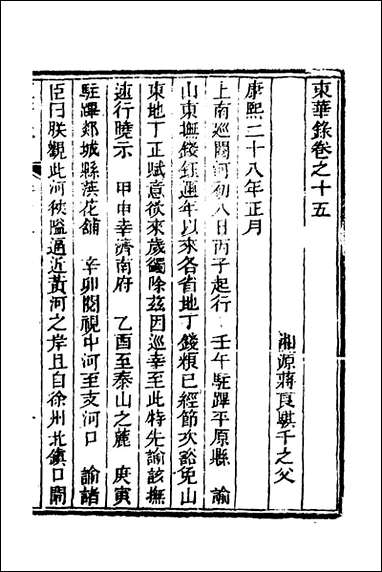 東華錄卷之十五
湘源蔣良騏千之父
康熙二十八年正月
上南巡閱河初八日丙子起行 壬午駐蹕平原縣 諭
山東撫錢鈺連年以來各省地丁錢糧已經節次豁免山
東地丁正賦意欲來歲蠲除茲因巡幸至此特先諭該撫
速行曉示 甲申幸濟南府 乙酉至泰山之麓 庚寅
駐蹕郯城縣葓花舖 辛卯閱視中河至支河口 諭諸
臣曰朕觀此河狹隘逼近黃河之岸且自徐州北鎮口閘